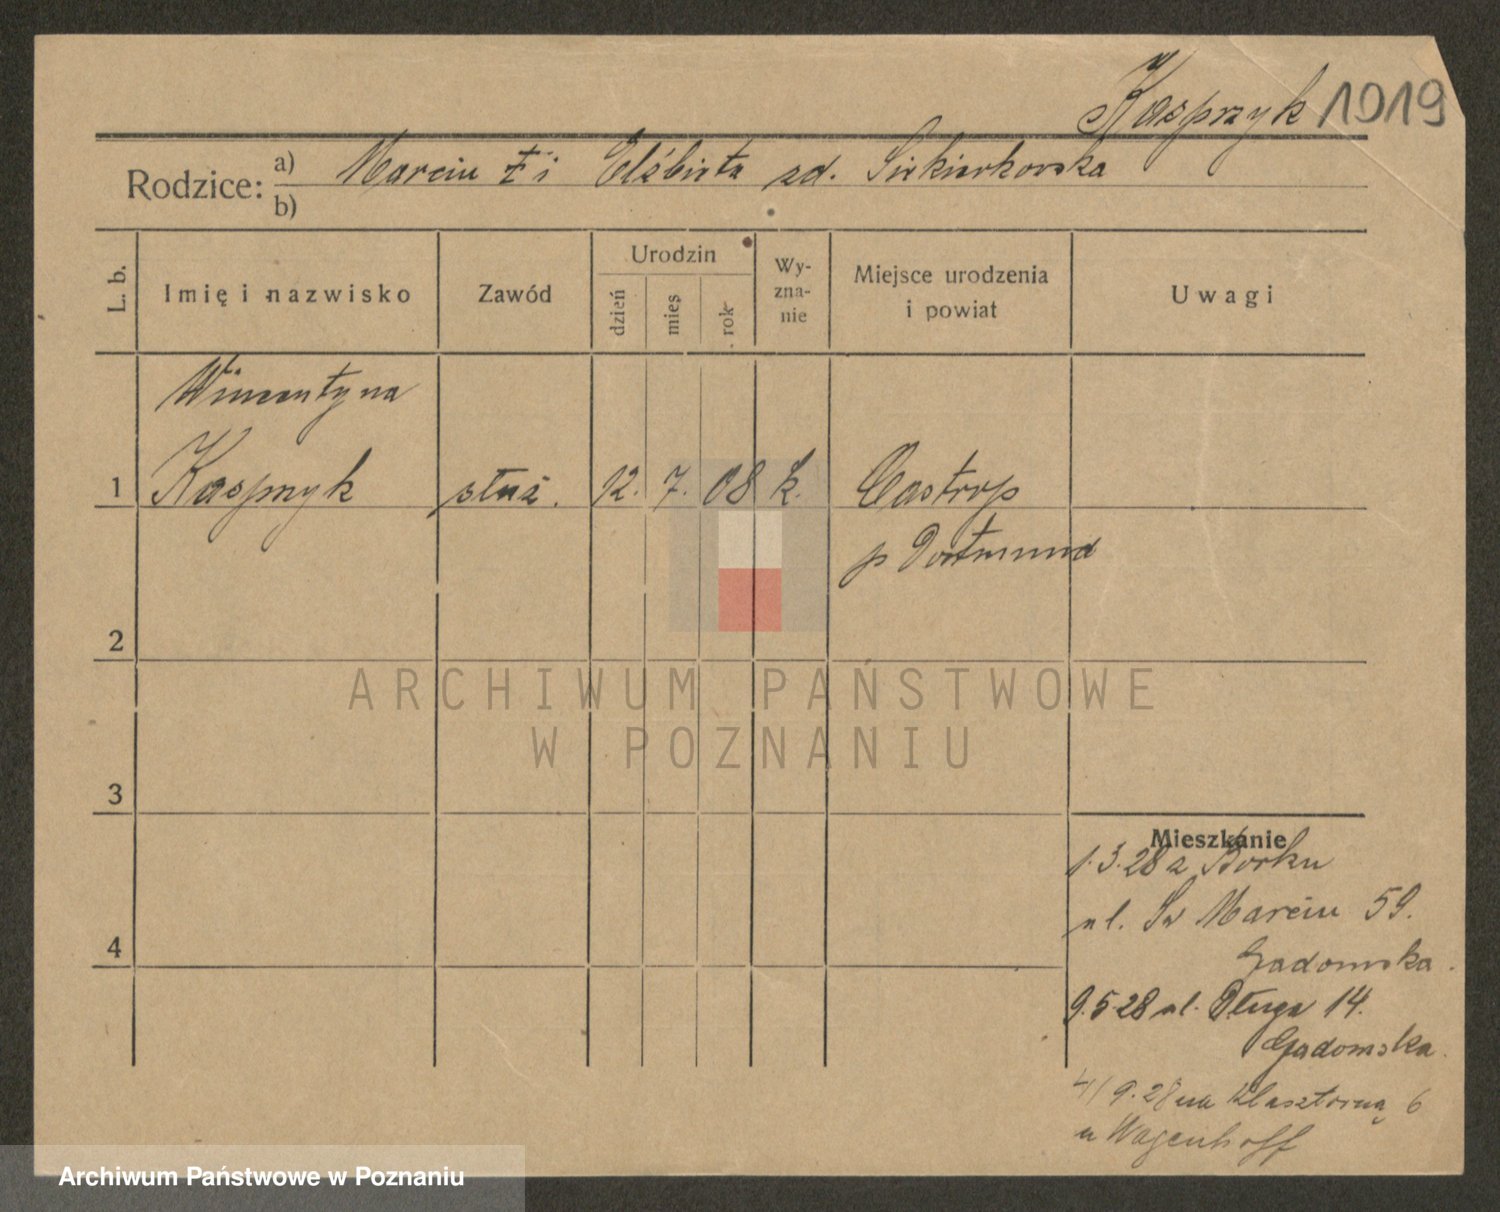 Kasprzyk 1919
Rodzice: a) Marcin † i Elżbieta zd. Siekierkowska
b)
L. b. Imię i nazwisko Zawód Urodzin dzień mies rok Wy-zna-nie Miejsce urodzenia i powiat Uwagi
Wincentyna
1 Kasprzyk służ. 12. 7. 08 k. Castrop
p Dortmund
2
ARCHIWUM PAŃSTWOWE
W POZNANIU
3
Mieszkanie
1.3.28 z Borku
4
ul. Św Marcin 59.
Gadomska.
9.5.28 ul. Długa 14.
Gadomska.
4/9.28 na Klasztorną 6
u Wagenhoff
Archiwum Państwowe w Poznaniu